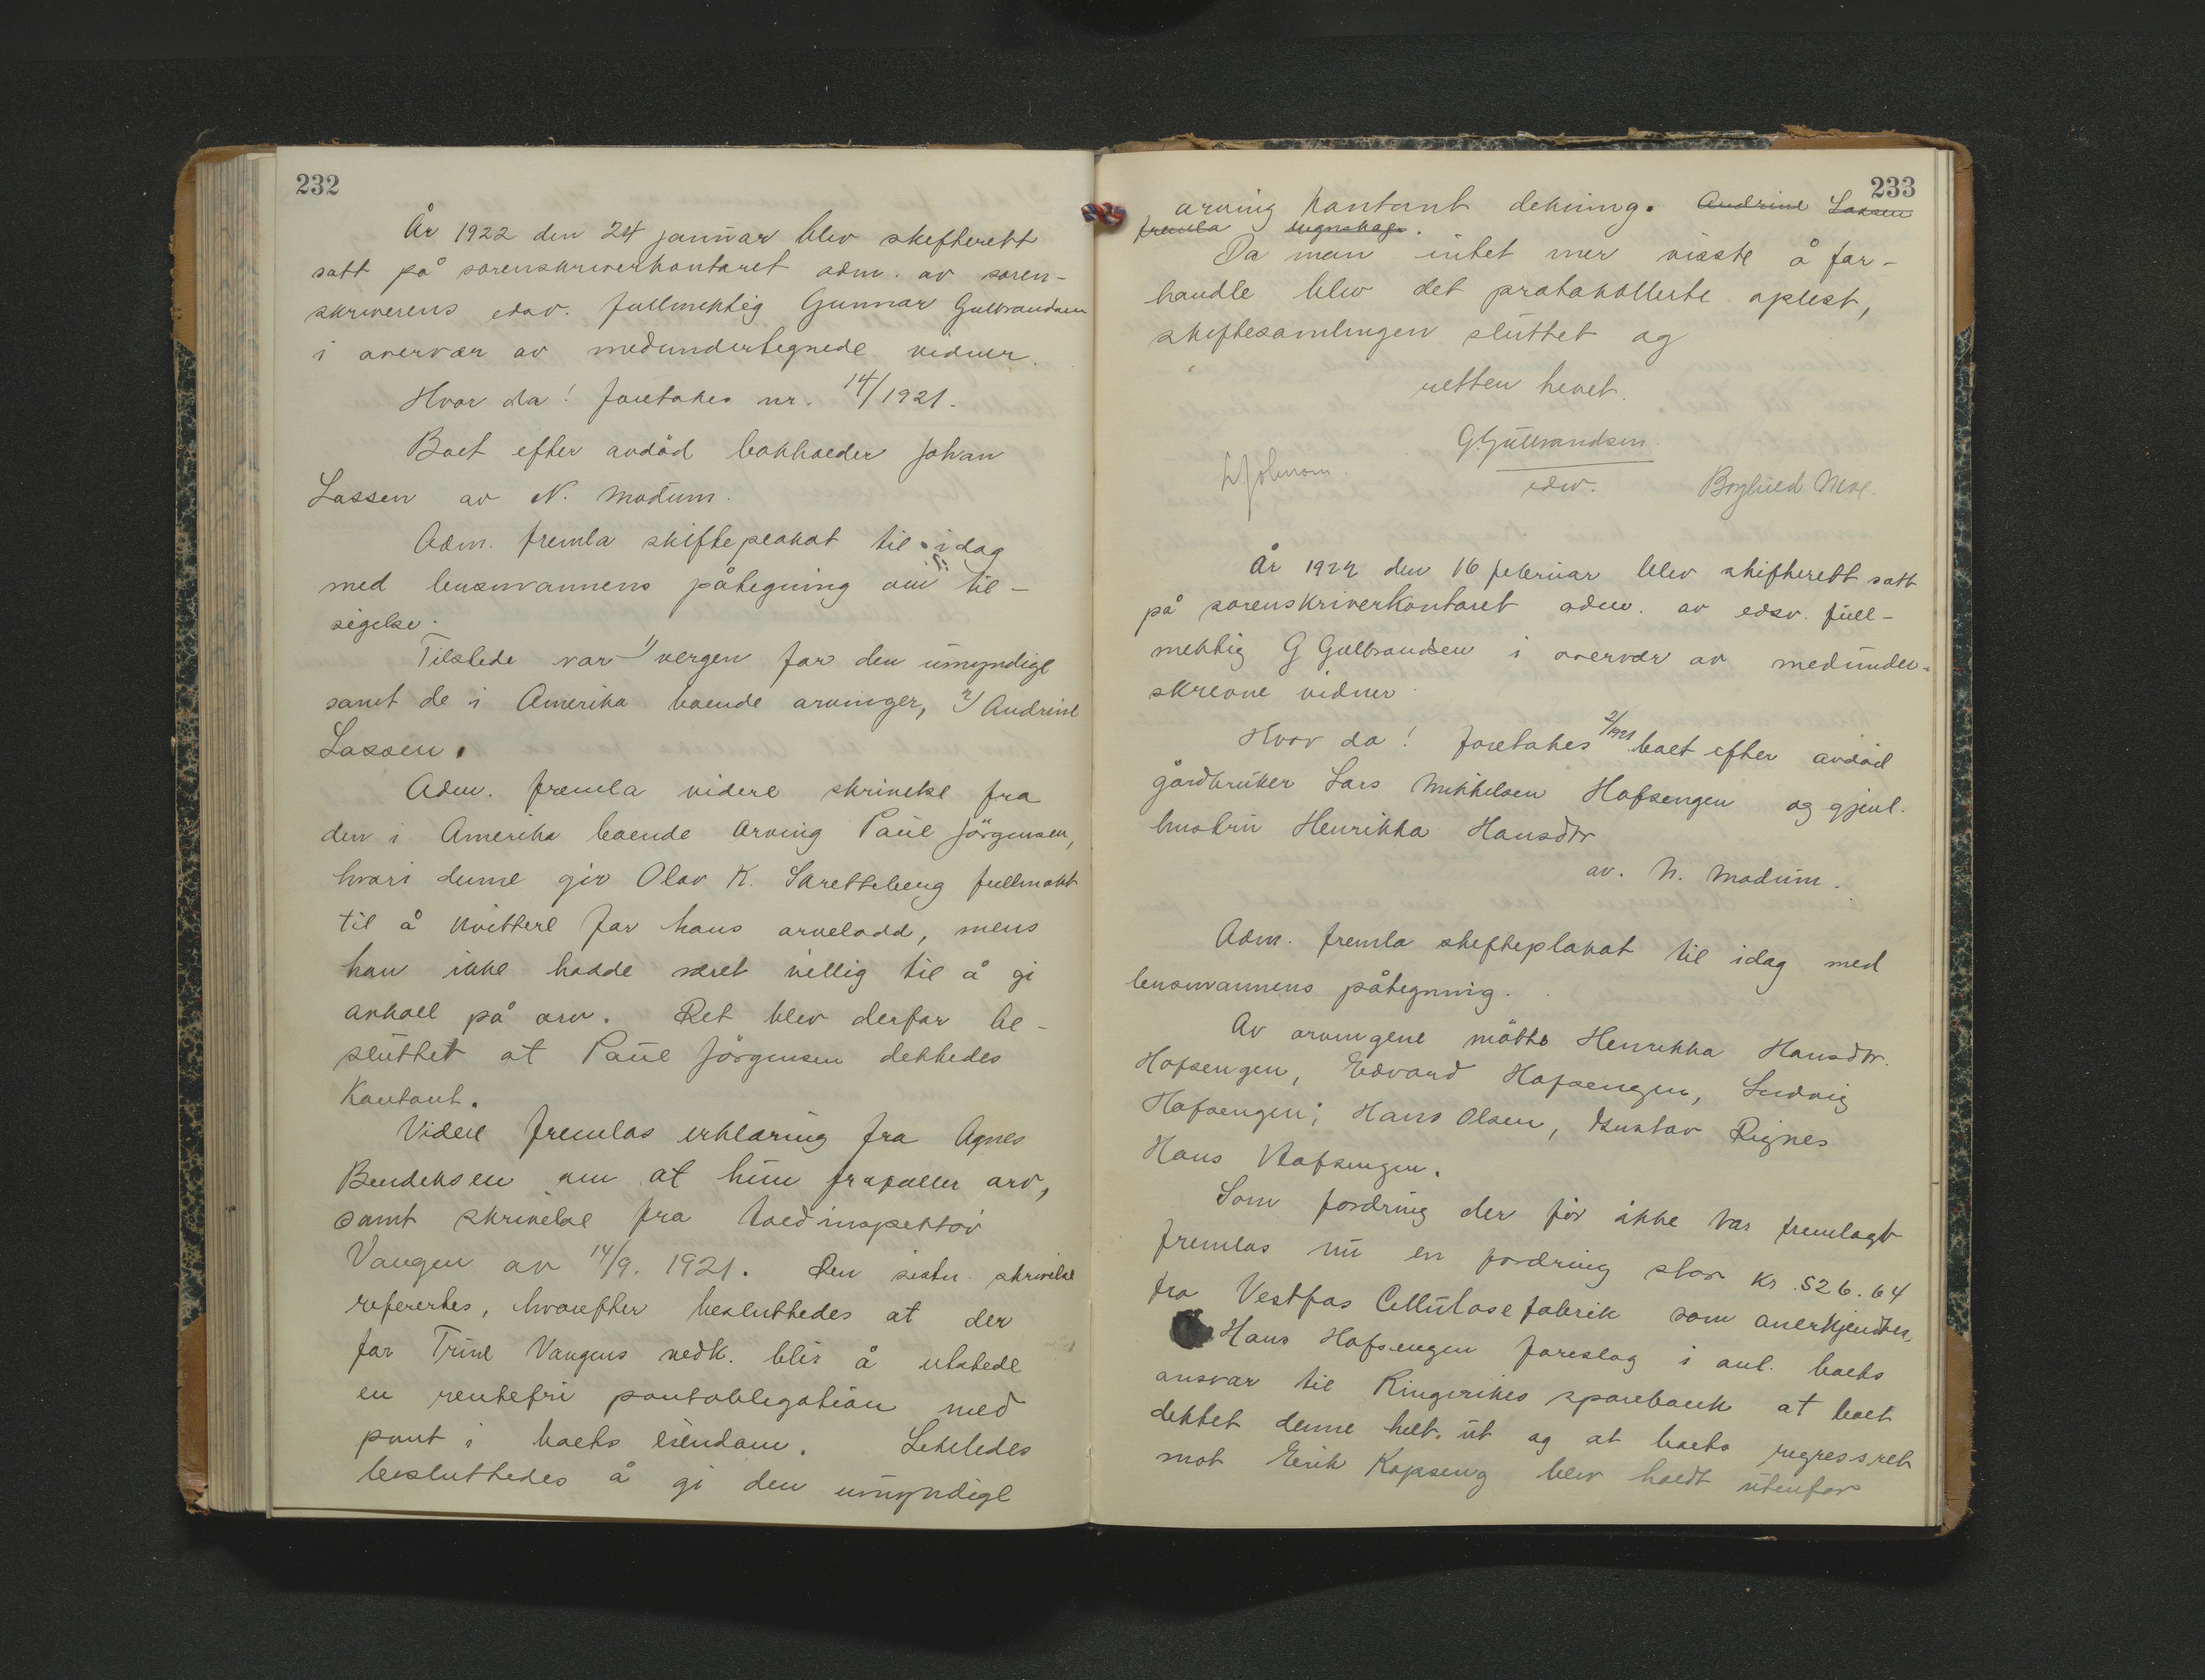 232
År 1922 den 24 januar blev skifterett
satt på sorenskriverkontoret adm. av soren-
skriverens edsv. fullmektig Gunnar Gulbrandsen
i overvær av medundertegnede vidner.
Hvor da! foretokes nr. 14/1921.
Boet efter avdöd bokholder Johan
Lassen av N. Modum.
Adm. fremla skifteplakat til idag
med lensmannens påtegning om til-
sigelse.
Tilstede var 1/ vergen for den umyndige
samt de i Amerika boende arvinger, 2/ Andrine
Lassen.
Adm. fremla videre skrivelse fra
den i Amerika boende arving Paul Jörgensen,
hvori denne giv Olav K. Skretteberg fullmakt
til å kvittere for hans arvelodd, mens
han ikke hadde været villig til å gi
avkall på arv. Det blev derfor be-
sluttet at Paul Jörgensen dekkedes
kontant.
Videre fremlas erklæring fra Agnes
Bendiksen om at hun frafaller arv,
samt skrivelse fra toldinspektör
Vangen av 14/9. 1921. Den sistn. skrivelse
refereres, hvorefter besluttedes at der
for Trine Vangens vedk. blir å utstede
en rentefri pantobligation med
pant i boets eiendom. Likeledes
besluttedes å gi den umyndige
233
arving kontant dekning. Andrine Lassen
fremla regnskap.
Da man intet mer visste å for-
handle blev det protokollerte oplest,
skiftesamlingen sluttet og
retten hevet.
G. Gulbrandsen.
edsv.
Borghild Moe.
År 1922 den 16 februar blev skifterett satt
på sorenskriverkontoret adm. av edsv. full-
mektig G Gulbrandsen i overvær av medunder-
skrevne vidner.
Hvor da! foretokes 2/1921 boet efter avdöd
gårdbruker Lars Mikkelsen Hofsengen og gjenl.
hustru Henrikka Hansdtr
av. N. Modum.
Adm. fremla skifteplakat til idag med
lensmannens påtegning.
Av arvingene mötte Henrikka Hansdtr.
Hofsengen, Edvard Hofsengen, Ludvig
Hofsengen; Hans Olsen, Gustav Rignes
Hans Hofsengen.
Som fordring der för ikke var fremlagt
fremlas nu en fordring stor kr. 526.64
fra Vestfos Cellulosefabrik som anerkjendtes.
Hans Hofsengen foreslog i anl. boets
ansvar til Ringerikes sparebank at boet
dekket denne helt ut og at boets regressret
mot Eirik Kopseng blev holdt utenfor